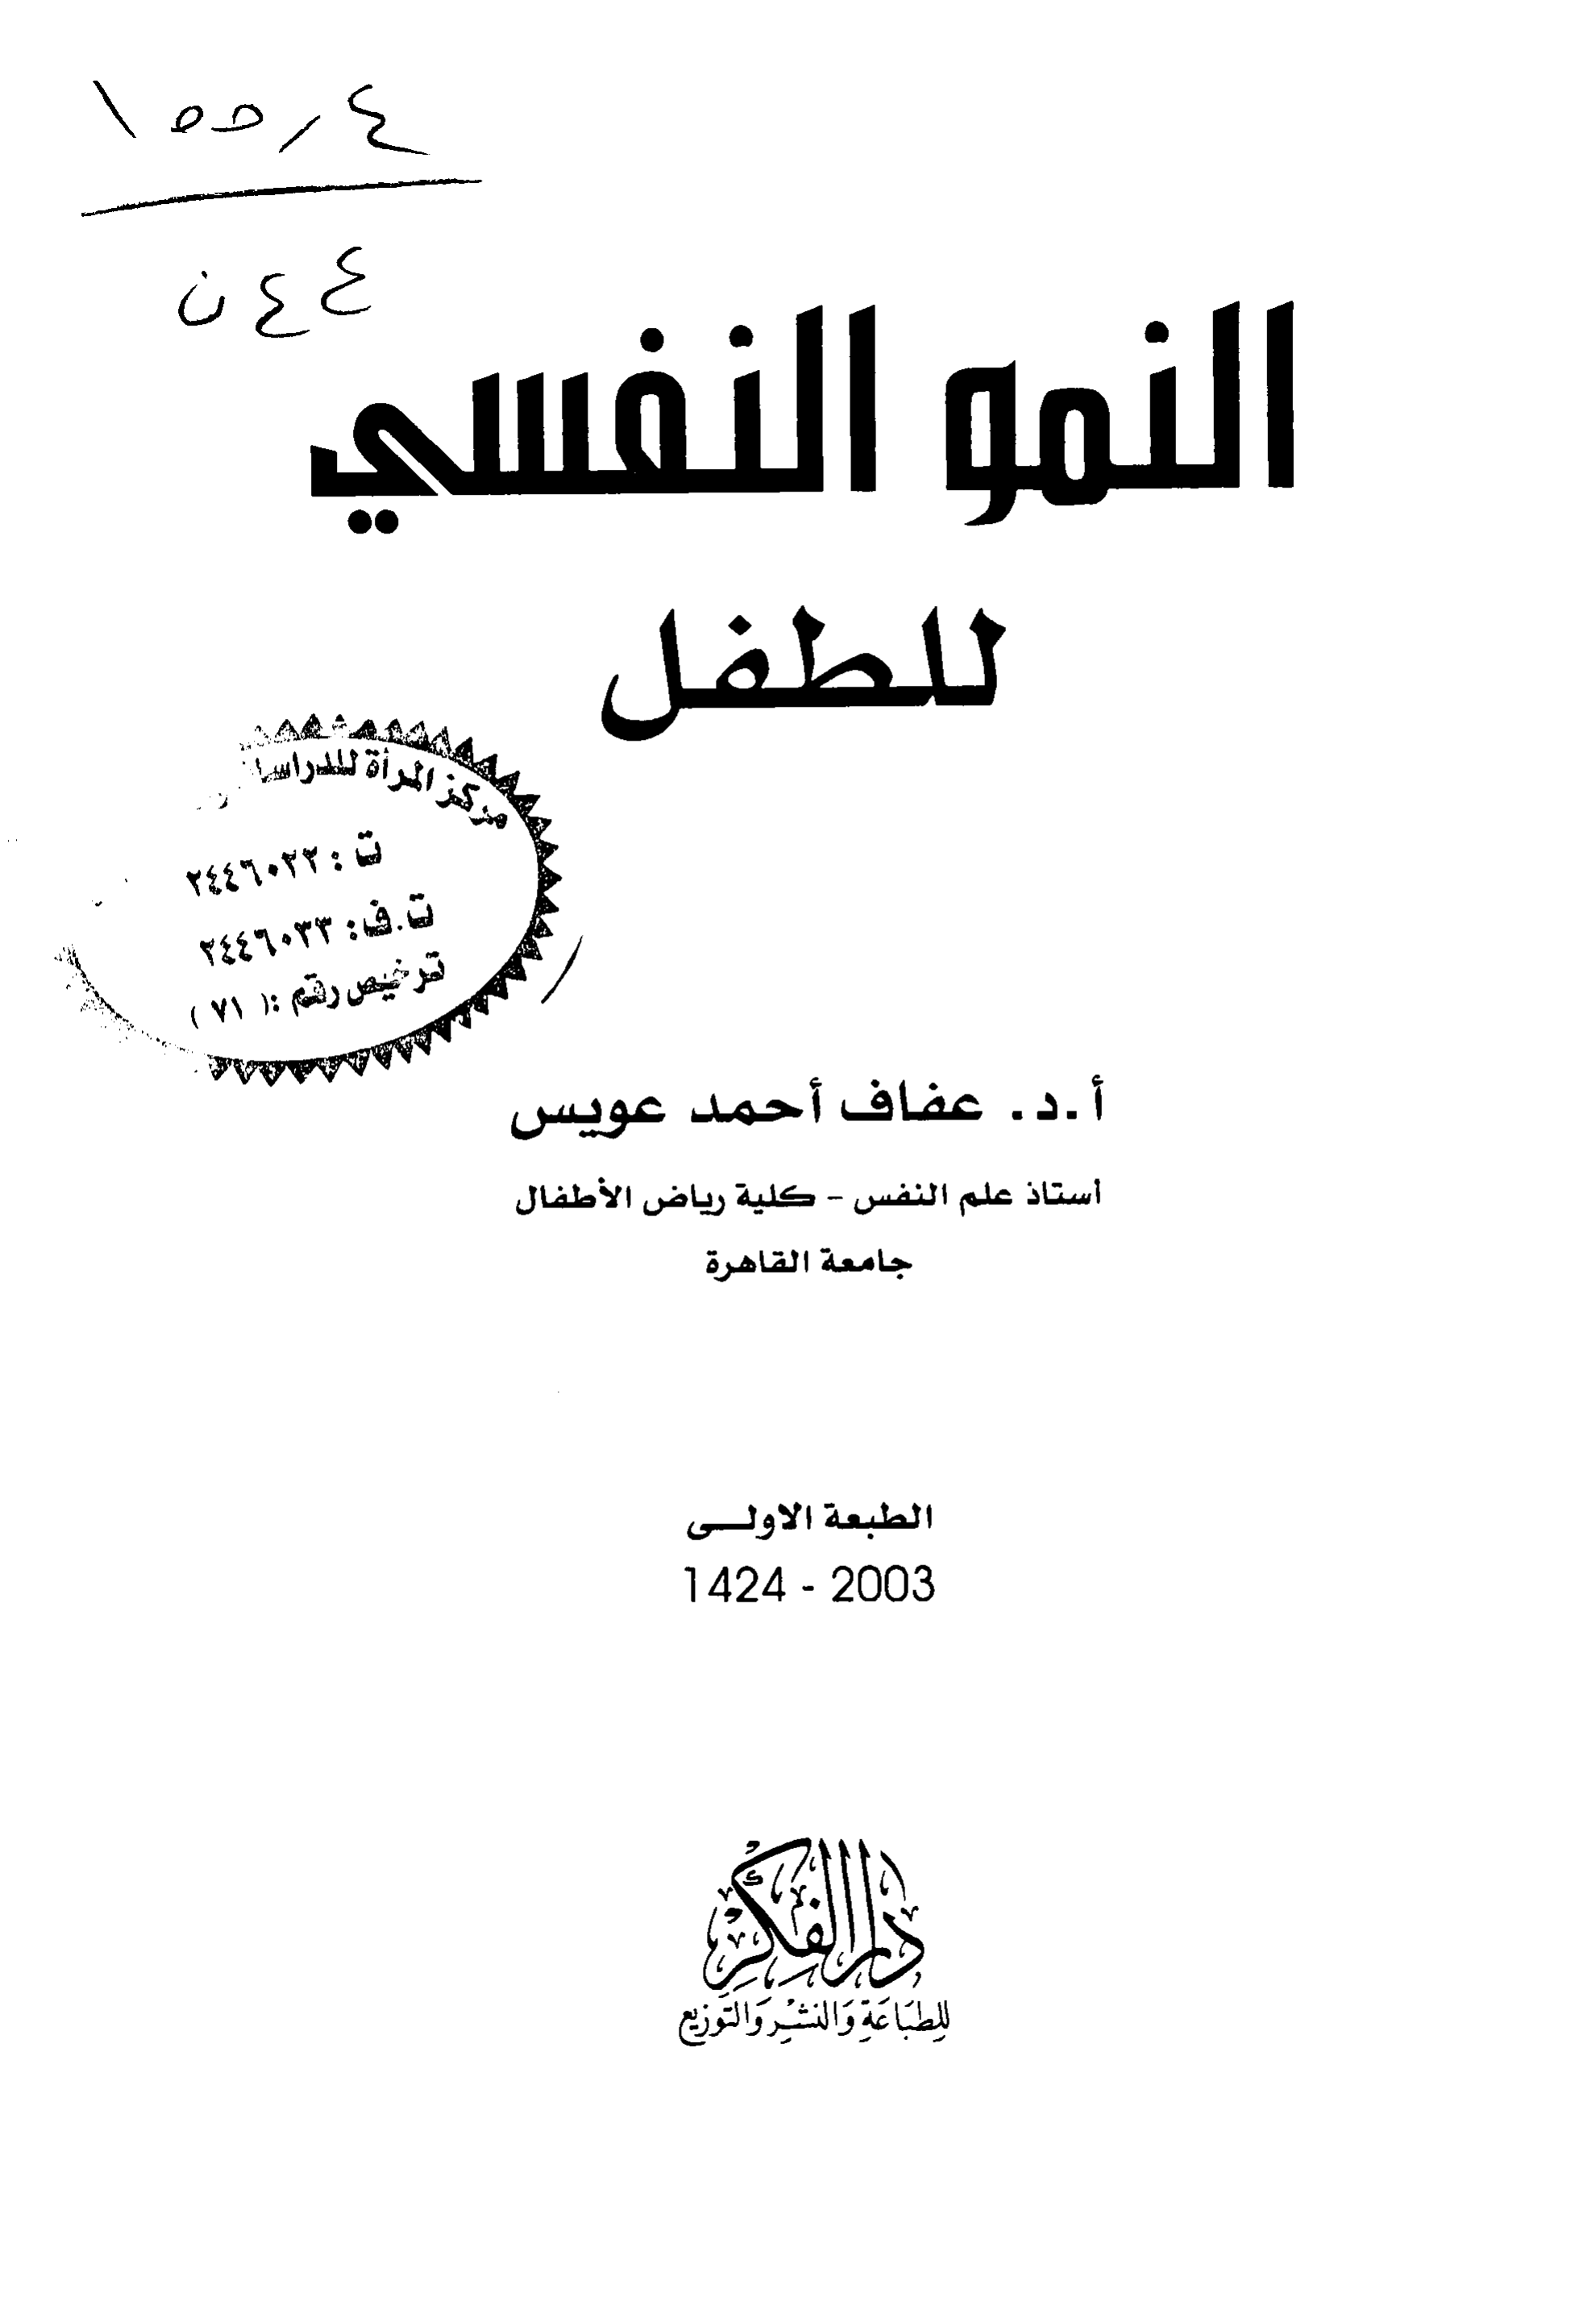 ١٥٥,٤
ن ٤٤
النمو النفسي
للطفل
مركز المرأة للدراسا
ت : ٢٤٤٦٠٢٢
ت.ف: ٢٤٤٦٠٣٣
ترخيص رقم :( ٧١ )
أ.د. عفاف أحمد عويس
أستاذ علم النفس - كلية رياض الأطفال
جامعة القاهرة
الطبعة الاولـــى
1424 - 2003
دَارُ الفِكْرِ
لِلطِّبَاعَةِ وَالنَشْرِ وَالتَوْزِيع